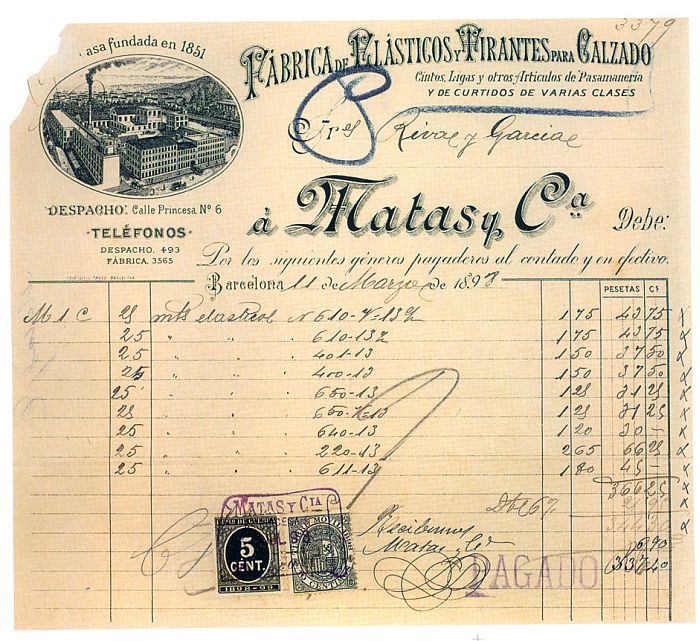 3379
asa fundada en 1851
FÁBRICA DE ELÁSTICOS Y TIRANTES PARA CALZADO
Cintos, Ligas y otros Artículos de Pasamanería
Y DE CURTIDOS DE VARIAS CLASES
Sres Rivas y Garcia
DESPACHO: Calle Princesa, Nº 6
TELÉFONOS
DESPACHO, 493
FÁBRICA, 3565
á Matas y Cª Debe:
Por los siguientes géneros pagaderos al contado y en efectivo.
Barcelona 11 de Marzo de 1898
PESETAS Cs
M 1 C 25 mts elasticos N 610-V-13 175 43 75
25 " " " 610-13 175 43 75
25 " " " 401-13 150 37 50
25 " " " 400-13 150 37 50
25 " " " 650-13 125 31 25
25 " " " 650-V-13 125 31 25
25 " " " 640-13 120 30 -
25 " " " 220-13 265 66 25
25 " " " 611-13 180 45 -
366 25
Dto 6%
344 30
6 90
337 40
MATAS Y CIA
5
CENT.
1898-99
MOVIL
Recibimos
Matas y Cª
PAGADO